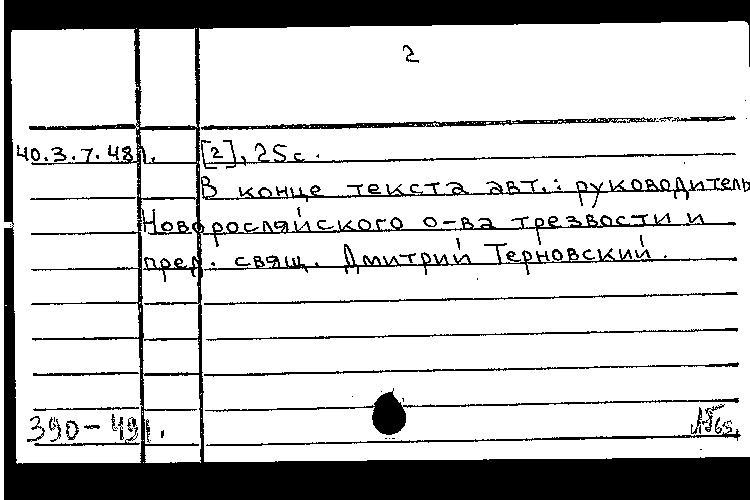 2
40.3.7.481. [2], 25 с.
В конце текста авт.: руководитель
Новоросляйского о-ва трезвости и
пред. свящ. Дмитрий Терновский.
390-491.